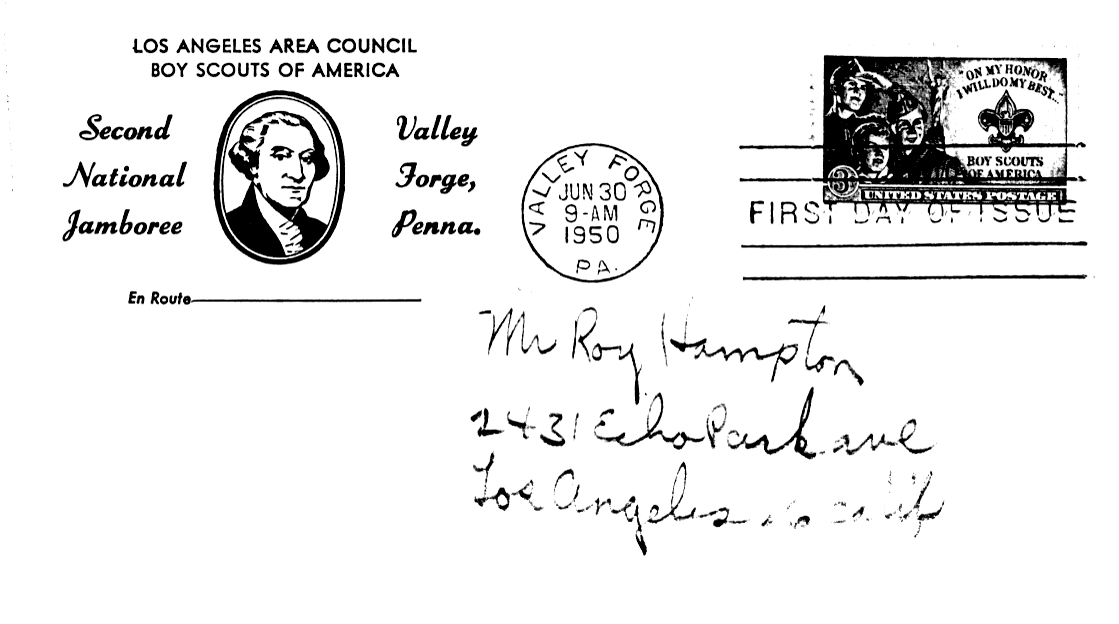 LOS ANGELES AREA COUNCIL
BOY SCOUTS OF AMERICA
Second
National
Jamboree
Valley
Forge,
Penna.
En Route
VALLEY FORGE
JUN 30
9-AM
1950
PA.
"ON MY HONOR
I WILL DO MY BEST..."
BOY SCOUTS
OF AMERICA
3¢
UNITED STATES POSTAGE
FIRST DAY OF ISSUE
Mr Roy Hampton
2431 Echo Park ave
Los Angeles 26 calif